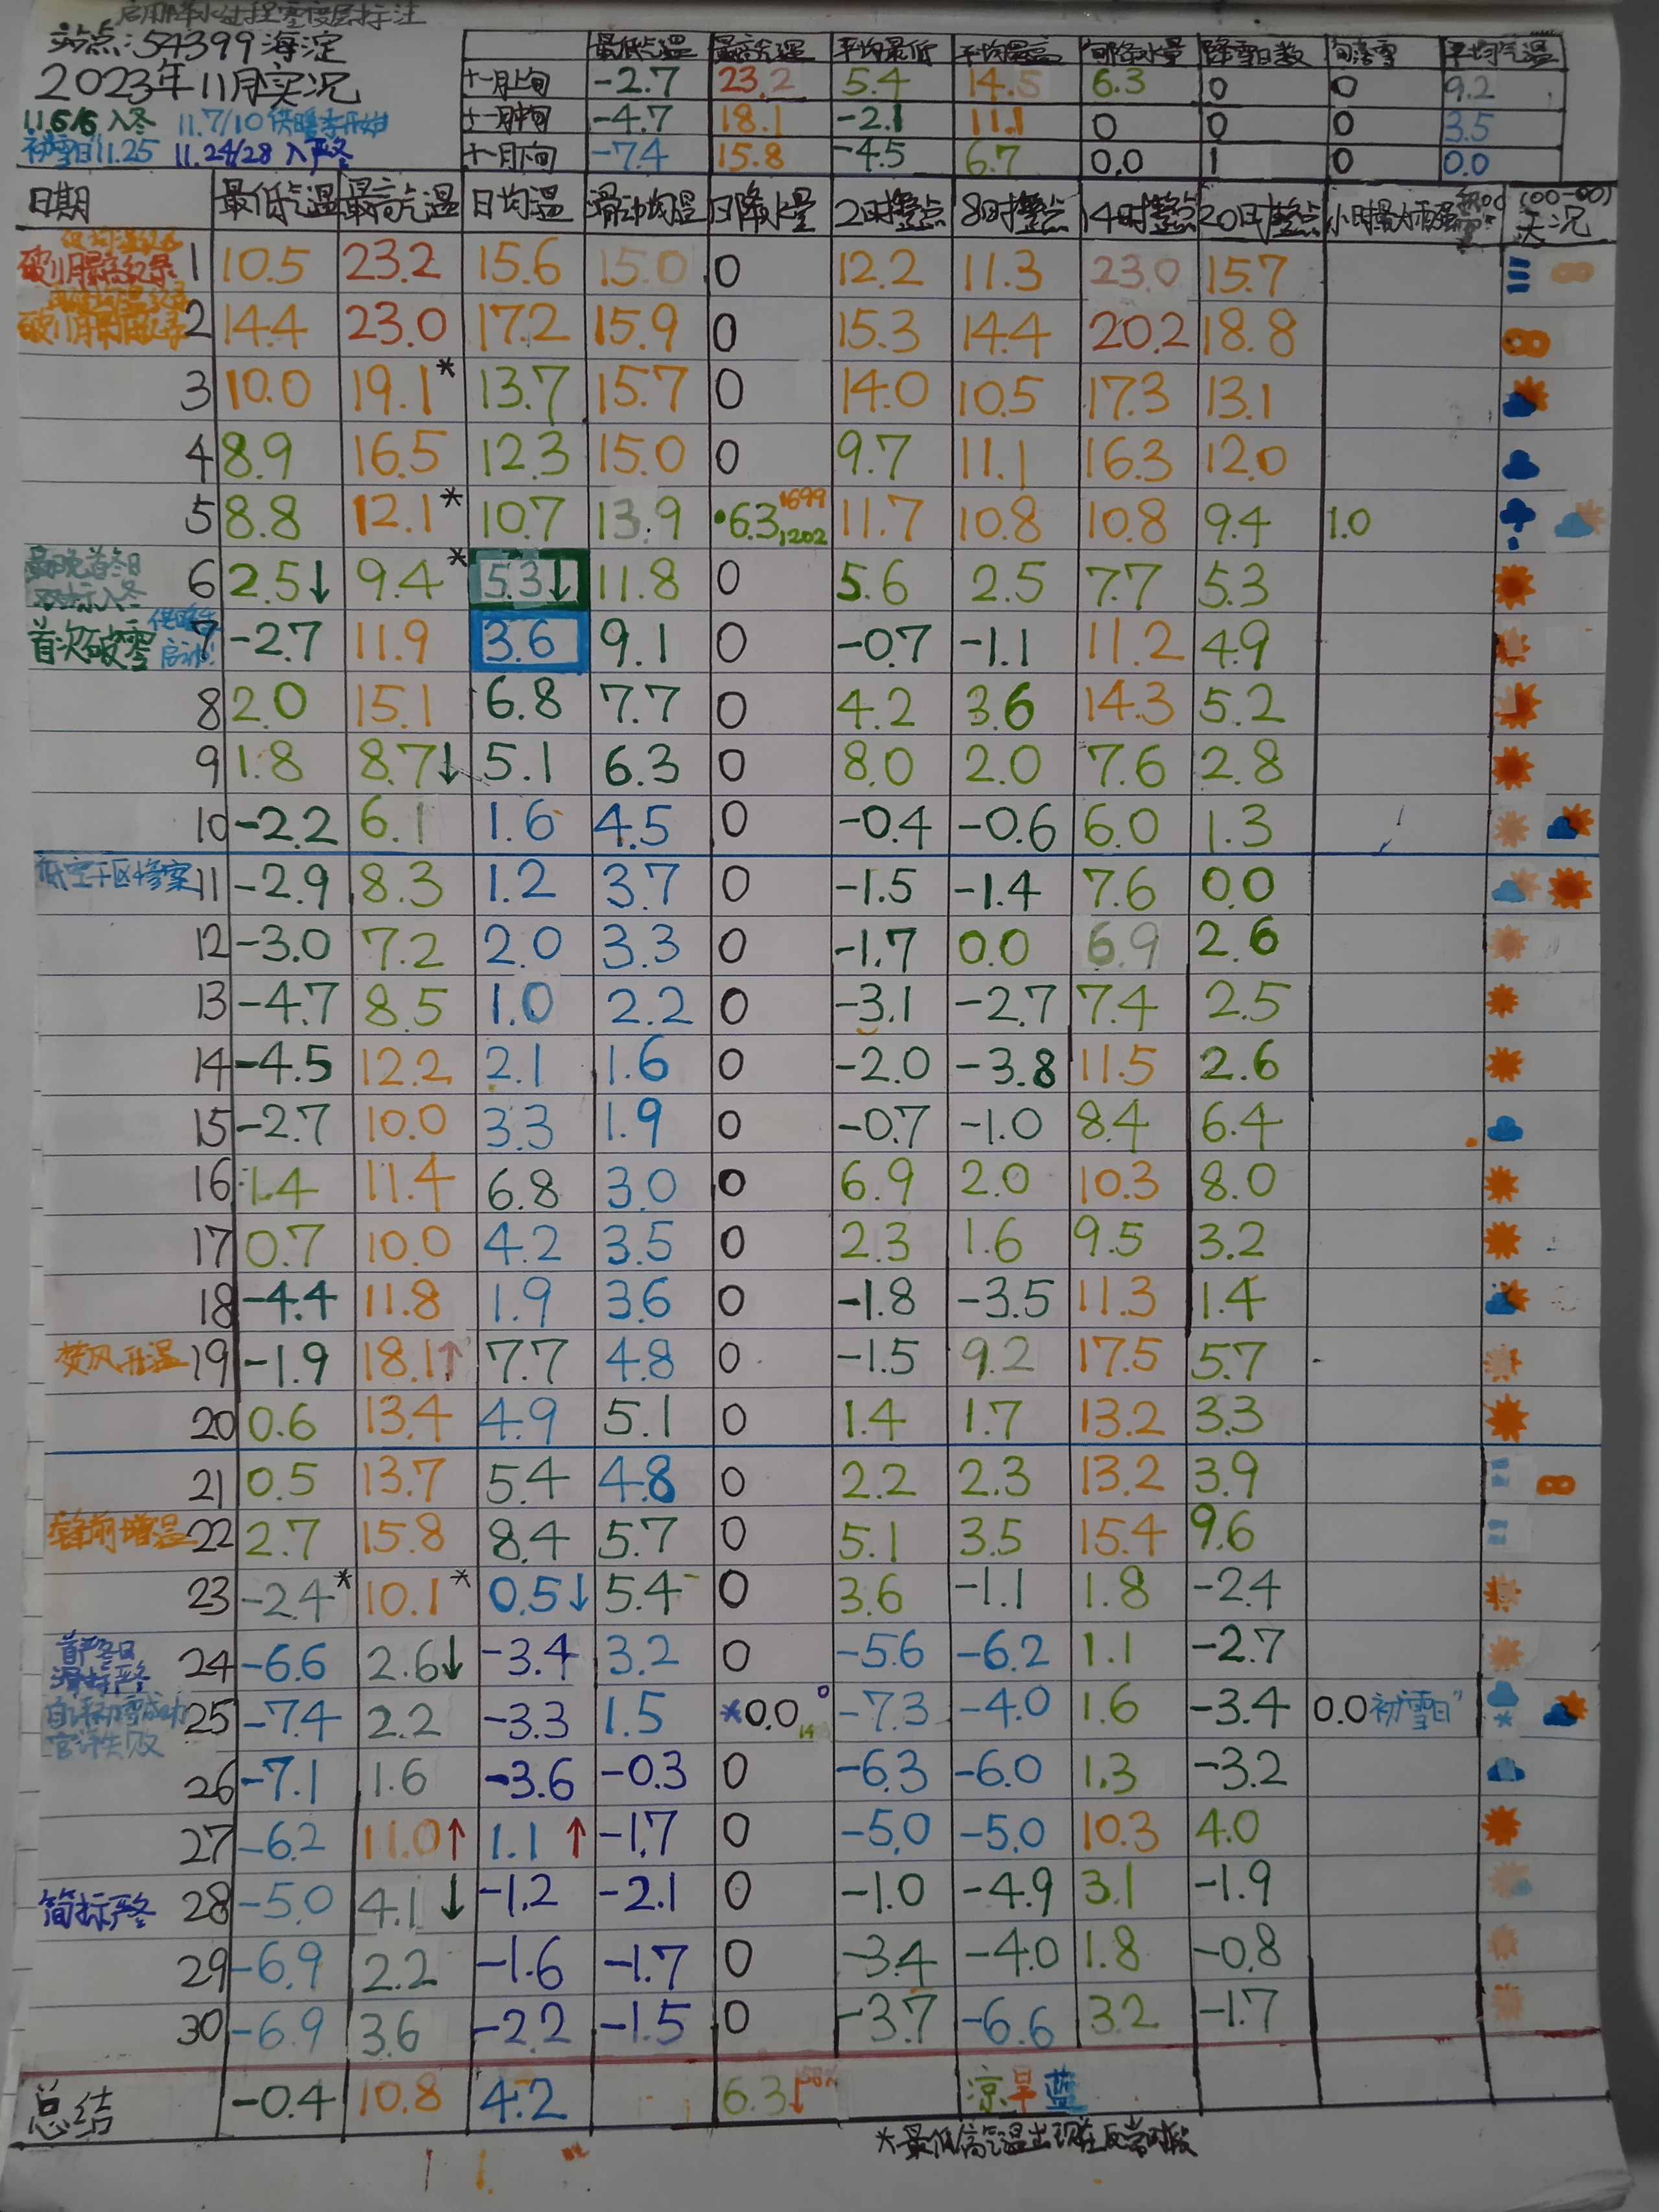 启用降水过程零度层标注
站点:54399海淀
2023年11月实况
11.6/6 入冬 11.7/10 供暖季开始
初雪日11.25 11.24/28 入严冬
最低气温 最高气温 平均最低 平均最高 旬降水量 降雪日数 旬落雪 平均气温
十一月上旬 -2.7 23.2 5.4 14.5 6.3 0 0 9.2
十一月中旬 -4.7 18.1 -2.1 11.1 0 0 0 3.5
十一月下旬 -7.4 15.8 -4.5 6.7 0.0 1 0 0.0
日期 最低气温 最高气温 日均温 滑动均温 日降水量 2时整点 8时整点 14时整点 20时整点 小时最大雨强 (00-00) 天况
破11月最高纪录 1 10.5 23.2 15.6 15.0 0 12.2 11.3 23.0 15.7
2 14.4 23.0 17.2 15.9 0 15.3 14.4 20.2 18.8
3 10.0 19.1* 13.7 15.7 0 14.0 10.5 17.3 13.1
4 8.9 16.5 12.3 15.0 0 9.7 11.1 16.3 12.0
5 8.8 12.1* 10.7 13.9 •6.3 1699 1202 11.7 10.8 10.8 9.4 1.0
最晚首冬日
双标入冬 6 2.5↓ 9.4* 5.3↓ 11.8 0 5.6 2.5 7.7 5.3
首次破零 供暖季启动! 7 -2.7 11.9 3.6 9.1 0 -0.7 -1.1 11.2 4.9
8 2.0 15.1 6.8 7.7 0 4.2 3.6 14.3 5.2
9 1.8 8.7↓ 5.1 6.3 0 8.0 2.0 7.6 2.8
10 -2.2 6.1 1.6 4.5 0 -0.4 -0.6 6.0 1.3
低空干区惨案 11 -2.9 8.3 1.2 3.7 0 -1.5 -1.4 7.6 0.0
12 -3.0 7.2 2.0 3.3 0 -1.7 0.0 6.9 2.6
13 -4.7 8.5 1.0 2.2 0 -3.1 -2.7 7.4 2.5
14 -4.5 12.2 2.1 1.6 0 -2.0 -3.8 11.5 2.6
15 -2.7 10.0 3.3 1.9 0 -0.7 -1.0 8.4 6.4
16 1.4 11.4 6.8 3.0 0 6.9 2.0 10.3 8.0
17 0.7 10.0 4.2 3.5 0 2.3 1.6 9.5 3.2
18 -4.4 11.8 1.9 3.6 0 -1.8 -3.5 11.3 1.4
焚风升温 19 -1.9 18.1↑ 7.7 4.8 0 -1.5 9.2 17.5 5.7
20 0.6 13.4 4.9 5.1 0 1.4 1.7 13.2 3.3
21 0.5 13.7 5.4 4.8 0 2.2 2.3 13.2 3.9
锋前增温 22 2.7 15.8 8.4 5.7 0 5.1 3.5 15.4 9.6
23 -2.4* 10.1* 0.5↓ 5.4 0 3.6 -1.1 1.8 -2.4
首严冬日
滑标严冬 24 -6.6 2.6↓ -3.4 3.2 0 -5.6 -6.2 1.1 -2.7
自评初雪成功
官评失败 25 -7.4 2.2 -3.3 1.5 *0.0 0 14 -7.3 -4.0 1.6 -3.4 0.0 初雪日"
26 -7.1 1.6 -3.6 -0.3 0 -6.3 -6.0 1.3 -3.2
27 -6.2 11.0↑ 1.1↑ -1.7 0 -5.0 -5.0 10.3 4.0
简标严冬 28 -5.0 4.1↓ -1.2 -2.1 0 -1.0 -4.9 3.1 -1.9
29 -6.9 2.2 -1.6 -1.7 0 -3.4 -4.0 1.8 -0.8
30 -6.9 3.6 -2.2 -1.5 0 -3.7 -6.6 3.2 -1.7
总结 -0.4 10.8 4.2 6.3↓ 凉旱蓝
*最低/高气温出现在反常时段